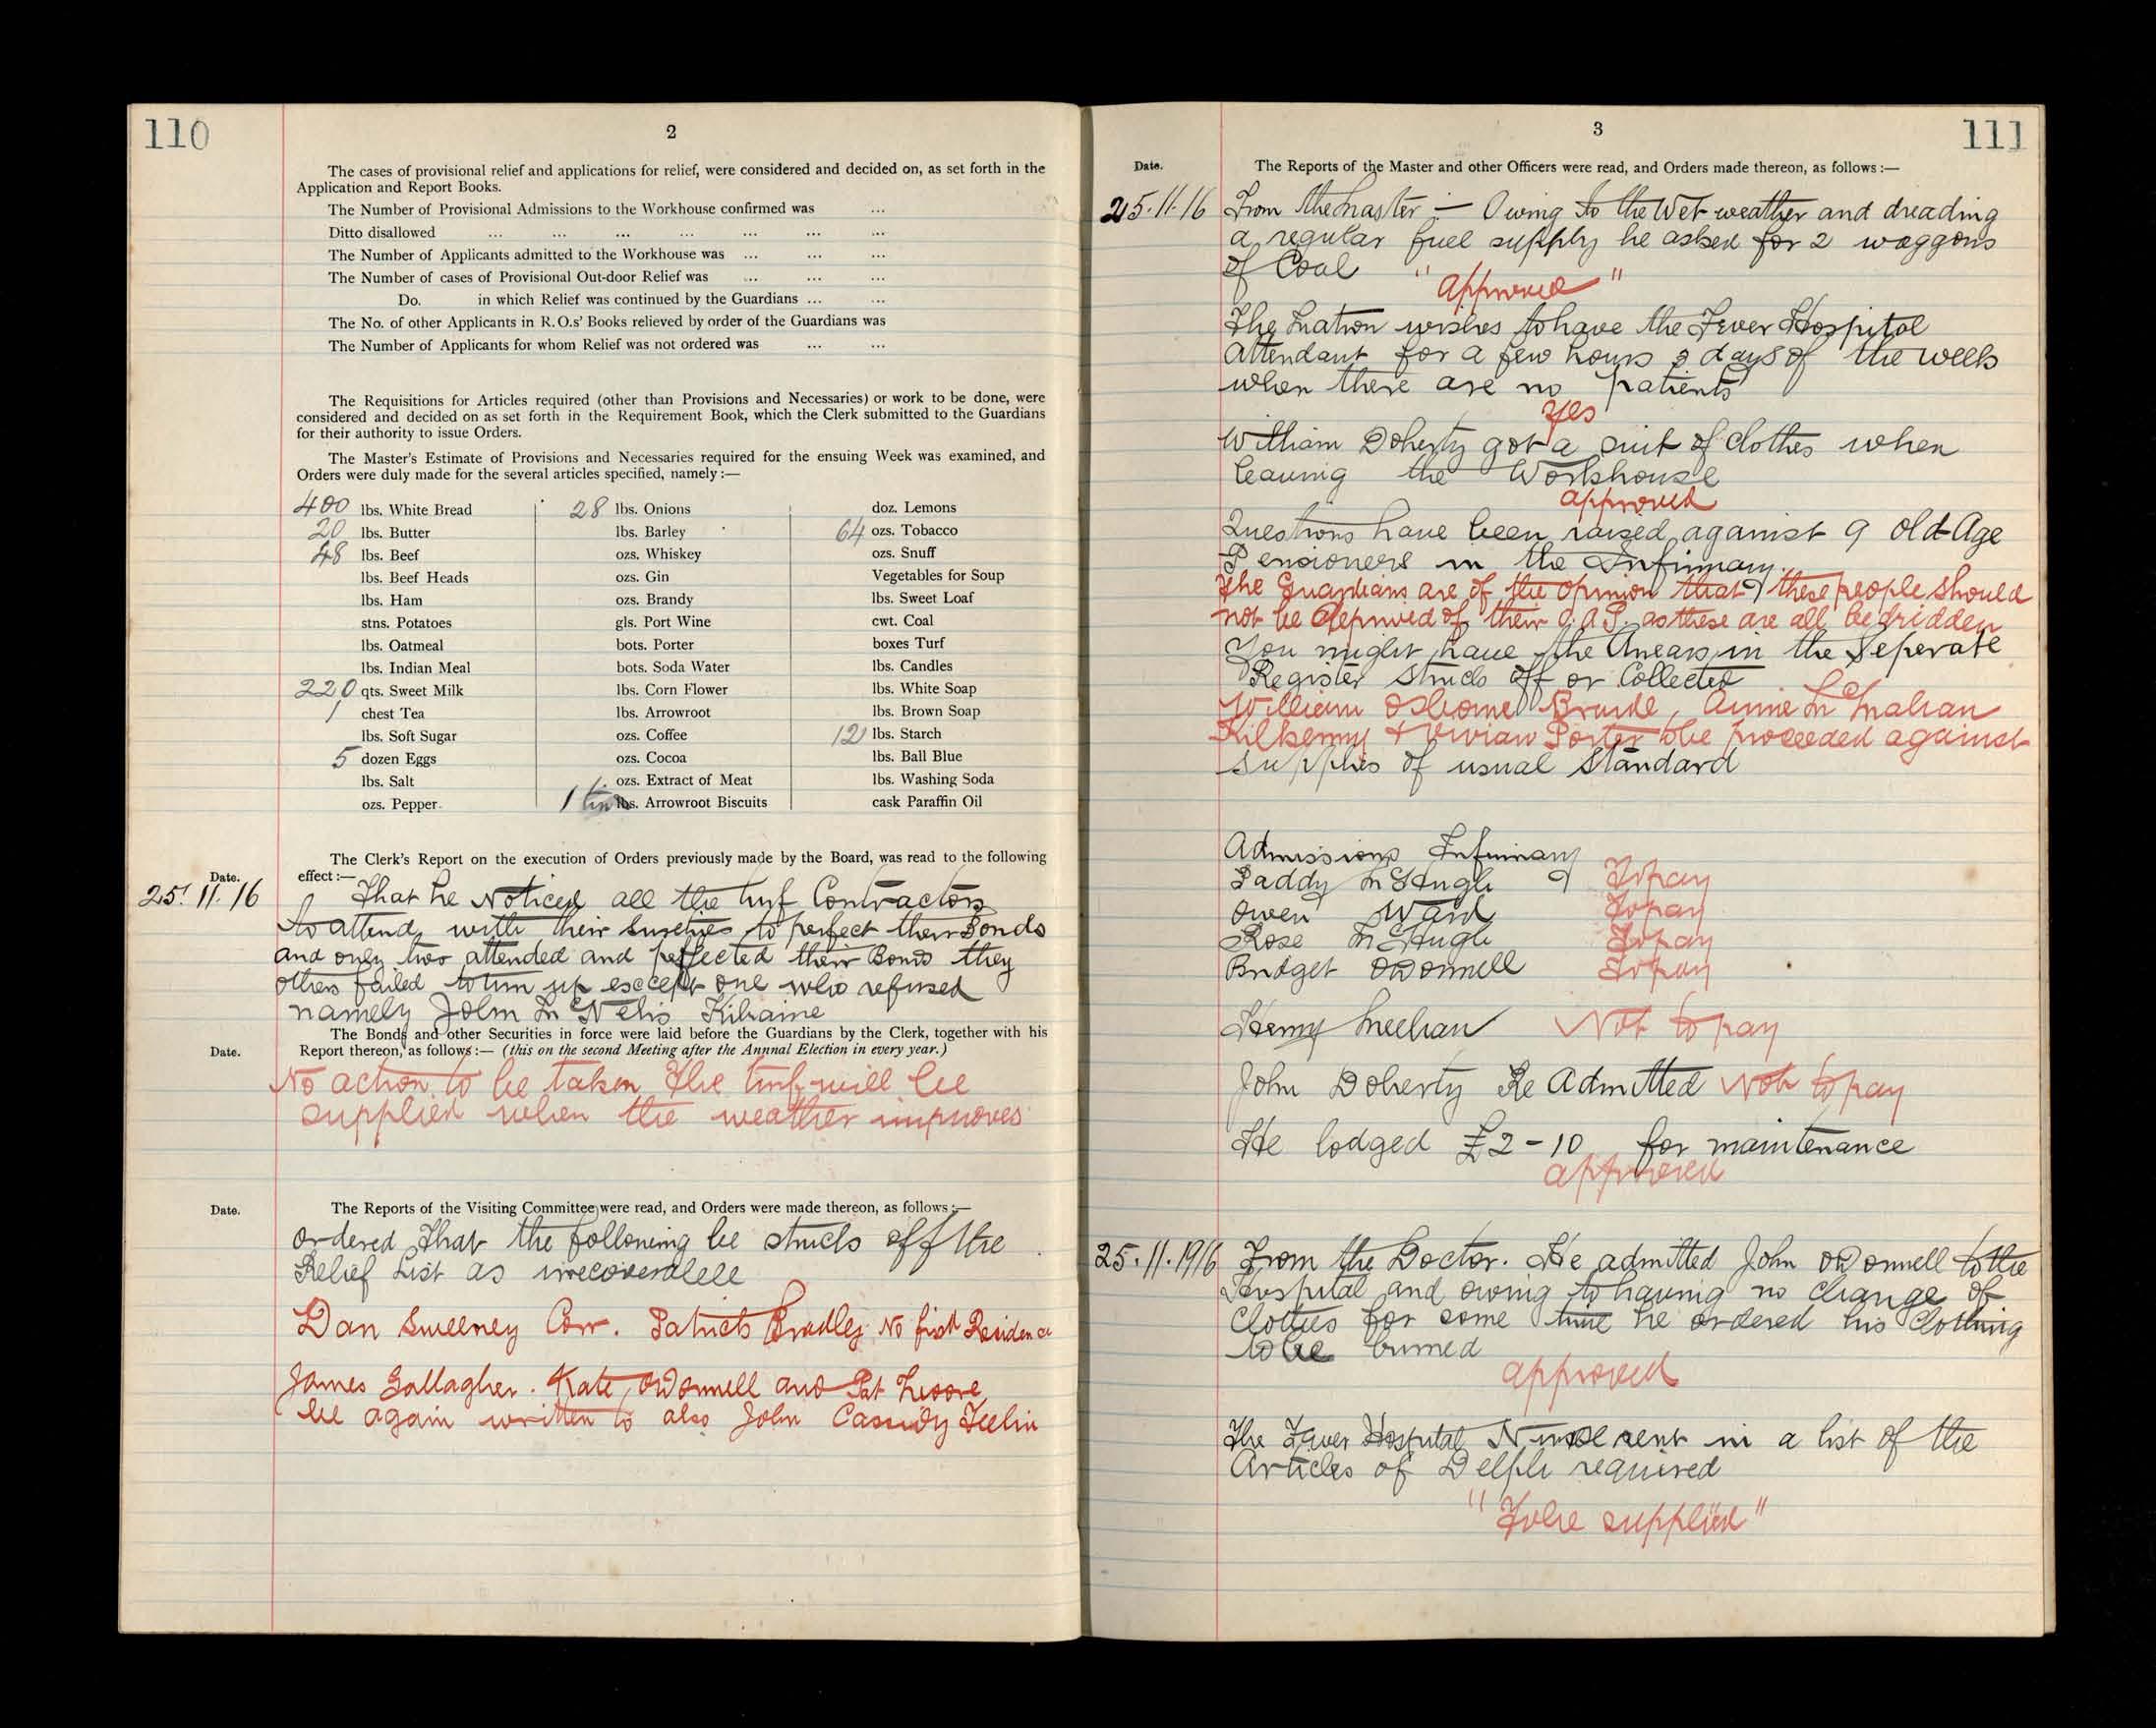 110
2
The cases of provisional relief and applications for relief, were considered and decided on, as set forth in the
Application and Report Books.
The Number of Provisional Admissions to the Workhouse confirmed was ...
Ditto disallowed ... ... ... ... ... ... ...
The Number of Applicants admitted to the Workhouse was ... ... ...
The Number of cases of Provisional Out-door Relief was ... ... ...
Do. in which Relief was continued by the Guardians ... ...
The No. of other Applicants in R.O.s' Books relieved by order of the Guardians was
The Number of Applicants for whom Relief was not ordered was ... ...
The Requisitions for Articles required (other than Provisions and Necessaries) or work to be done, were
considered and decided on as set forth in the Requirement Book, which the Clerk submitted to the Guardians
for their authority to issue Orders.
The Master's Estimate of Provisions and Necessaries required for the ensuing Week was examined, and
Orders were duly made for the several articles specified, namely :—
400 lbs. White Bread
20 lbs. Butter
48 lbs. Beef
lbs. Beef Heads
lbs. Ham
stns. Potatoes
lbs. Oatmeal
lbs. Indian Meal
220 qts. Sweet Milk
1 chest Tea
lbs. Soft Sugar
5 dozen Eggs
lbs. Salt
ozs. Pepper
28 lbs. Onions
lbs. Barley
ozs. Whiskey
ozs. Gin
ozs. Brandy
gls. Port Wine
bots. Porter
bots. Soda Water
lbs. Corn Flower
lbs. Arrowroot
ozs. Coffee
ozs. Cocoa
ozs. Extract of Meat
1 tin lbs. Arrowroot Biscuits
doz. Lemons
64 ozs. Tobacco
ozs. Snuff
Vegetables for Soup
lbs. Sweet Loaf
cwt. Coal
boxes Turf
lbs. Candles
lbs. White Soap
lbs. Brown Soap
12 lbs. Starch
lbs. Ball Blue
lbs. Washing Soda
cask Paraffin Oil
The Clerk's Report on the execution of Orders previously made by the Board, was read to the following
Date. effect :—
25.11.16 That he Noticed all the turf Contractors
to attend with their sureties to perfect their Bonds
and only two attended and perfected their Bonds they
others failed to turn up except one who refused
namely John McNelis Kilraine
The Bonds and other Securities in force were laid before the Guardians by the Clerk, together with his
Date. Report thereon, as follows :— (this on the second Meeting after the Annual Election in every year.)
No action to be taken the turf will be
supplied when the weather improves
Date. The Reports of the Visiting Committee were read, and Orders were made thereon, as follows :—
ordered that the following be struck off the
Relief List as irrecoverable
Dan Sweeney Corr. Patrick Bradley No fixed Residence
James Gallagher. Kate O'Donnell and Pat Moore
be again written to also John Cassidy Teelin
3
111
Date. The Reports of the Master and other Officers were read, and Orders made thereon, as follows :—
25.11.16 From the Master :— Owing to the Wet weather and dreading
a regular fuel supply he asked for 2 waggons
of Coal "approved"
The Matron wishes to have the Fever Hospital
Attendant for a few hours 2 days of the week
when there are no patients
Yes
William Doherty got a suit of clothes when
leaving the Workhouse
approved
Questions have been raised against 9 Old Age
Pensioners in the Infirmary.
The Guardians are of the opinion that these people should
not be deprived of their O.A.P. as these are all bedridden
You might have the Arrears in the Seperate
Register Struck off or Collected
William Osborne Bruckl, Annie McMahan
Kilkenny + Vivian Porter to be proceeded against
Supplies of usual Standard
Admissions Infirmary
Paddy McHugh To pay
Owen Ward To pay
Rose McHugh To pay
Bridget O'Donnell To pay
Henry Meehan Not to pay
John Doherty Re Admitted Not to pay
He lodged £2-10 for maintenance
approved
25.11.1916 From the Doctor. He admitted John O'Donnell to the
Hospital and owing to having no change of
Clothes for some time he ordered his Clothing
to be burned
approved
The Fever Hospital Nurse sent in a list of the
Articles of Delph required
"To be supplied"